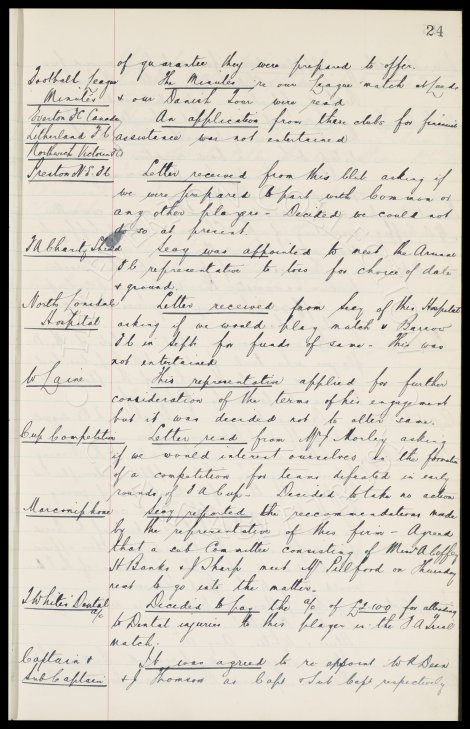 24
of guarantee they were prepared to offer.
Football League The Minutes re our League match at Leeds
Minutes & our Danish Tour were read
Everton FC Canada An application from these clubs for financial
Litherland FC assistance was not entertained
Northwich Victoria FC
Preston N.E. FC Letter received from this club asking if
we were prepared to part with Common or
any other players - Decided we could not
do so at present
F A Charity Shield Secy was appointed to meet the Arsenal
FC representative to toss for choice of date
& ground.
North Lonsdale Letter received from Secy of this Hospital
Hospital asking if we would play match v Barrow
FC in Sept for funds of same - This was
not entertained
W Laine This representative applied for further
consideration of the terms of his engagement
but it was decided not to alter same.
Cup Competition Letter read from Mr J Morley asking
if we would interest ourselves in the formation
of a competition for teams defeated in early
rounds of F A Cup. Decided to take no action
Marconiphone Secy reported the reccommendations made
by the representative of this firm - Agreed
that a sub Committee consisting of Messrs A Coffey
H Banks & J Sharp meet Mr on Thursday
next to go into the matter.
T White's Dental Decided to pay the a/c of for attending
a/c to Dental injuries to this player in the F A Final
match.
Captain & It was agreed to re appoint W R Dean
Sub Captain & J Thomson as Capt & Sub Capt respectively